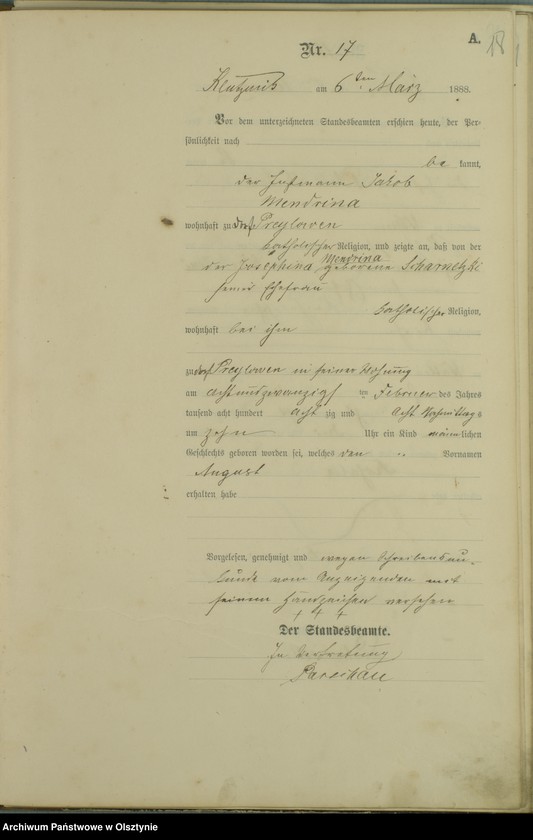 A.
18
Nr. 17
Kleutznick am 6ten März 1888.
Vor dem unterzeichneten Standesbeamten erschien heute, der Per-
sönlichkeit nach
be kannt,
der Insmann Jakob
Mendrina
wohnhaft zu Dorf Preylowen
katholischer Religion, und zeigte an, daß von der
der Josephina Mendrina geborene Scharnetzki
seiner Ehefrau
katholischer Religion,
wohnhaft bei ihm
zu Dorf Preylowen in seiner Wohnung
am achtundzwanzigsten Februar des Jahres
tausend acht hundert acht zig und acht Nachmittags
um zehn Uhr ein Kind männlichen
Geschlechts geboren worden sei, welches den Vornamen
August
erhalten habe
Vorgelesen, genehmigt und wegen Schreibensun-
kunde vom Anzeigenden mit
seinem Handzeichen versehen
+ + +
Der Standesbeamte.
In Vertretung
Archiwum Państwowe w Olsztynie